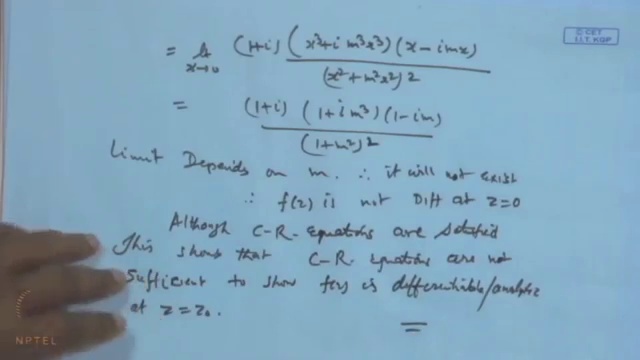 = lt x→0 (1+i) (x³+i m³x³) (x-imx) / (x²+m²x²)²
= (1+i) (1+i m³) (1-im) / (1+m²)²
Limit Depends on m, ∴ it will not exist
∴ f(z) is not Diff at z=0
Although C-R- Equations are satisfied
This shows that C-R- Equations are not
Sufficient to show f(z) is differentiable/analytic
at z=z₀.
© CET
I.I.T. KGP
NPTEL